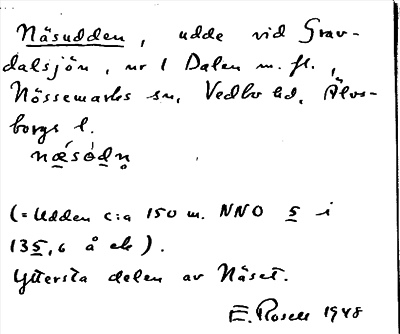 Näsudden, udde vid Grav-
dalsjön, nr 1 Dalen m. fl.,
Nössemarks sn, Vedbo hd, Älvs-
borgs l.
nǽ̲sód̲n̥
(= Udden c:a 150 m. NNO 5 i
135,6 å ek).
Yttersta delen av Näset.
E. Rosell 1948